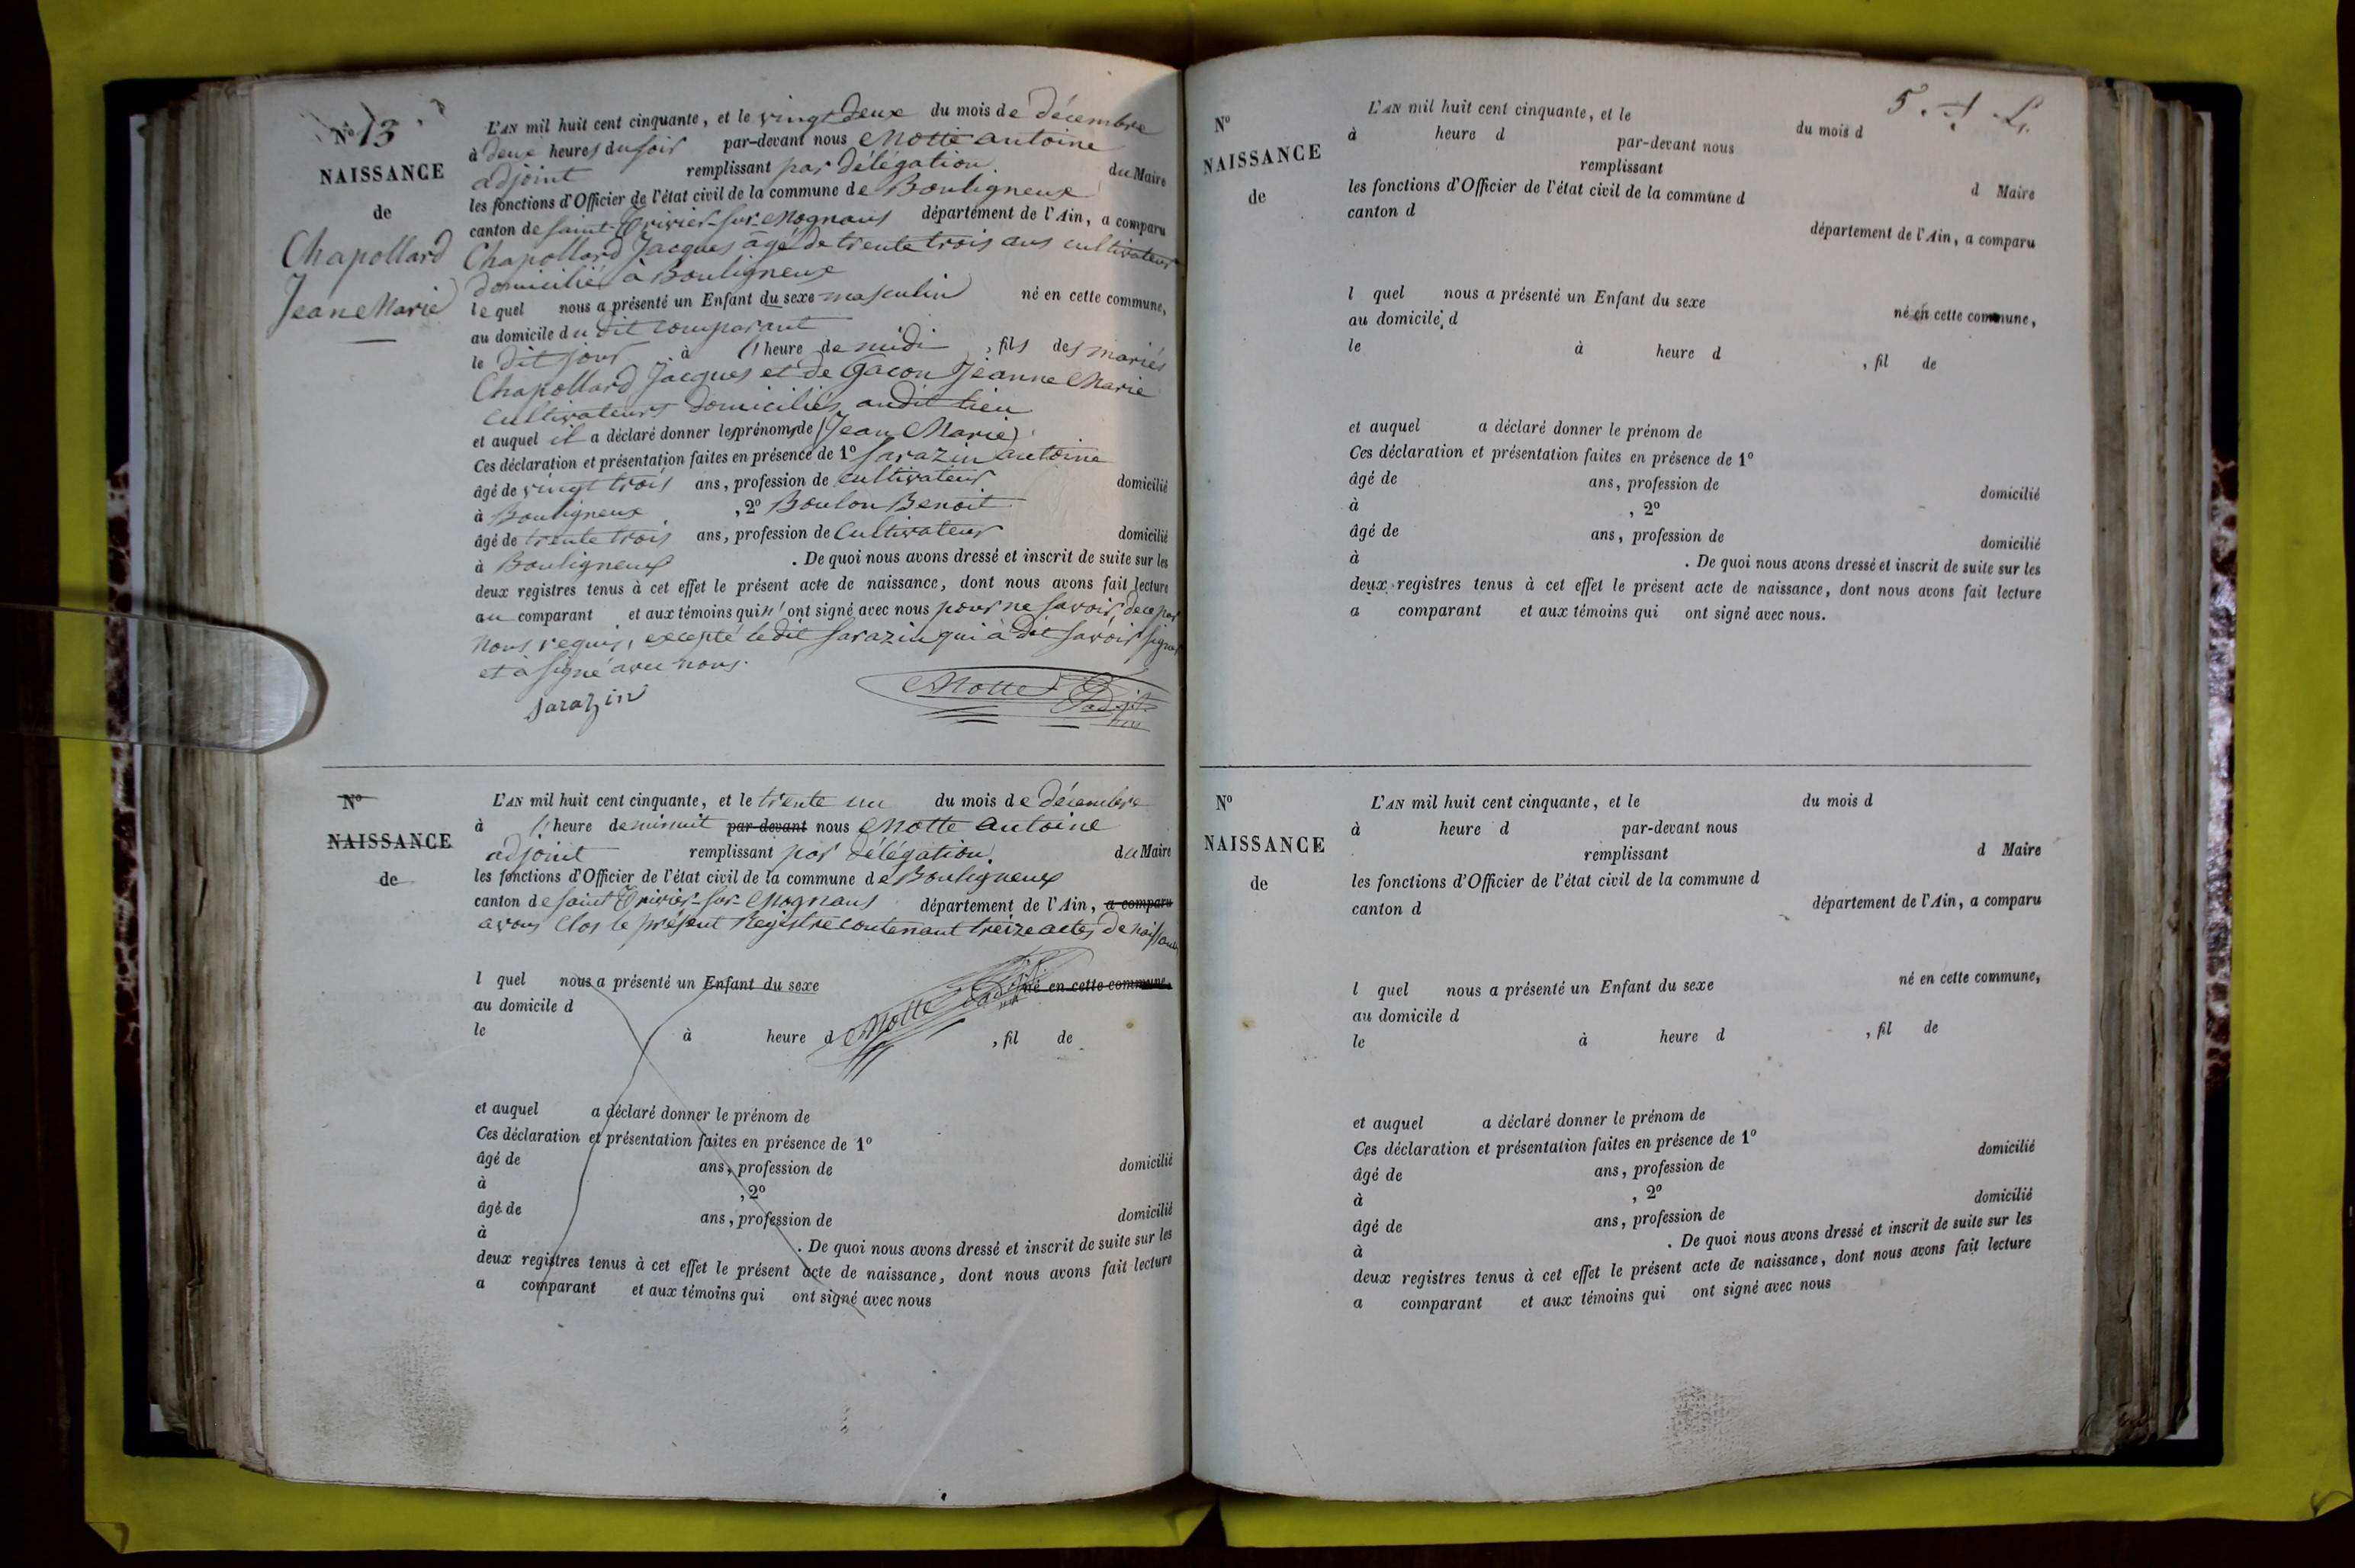 N° 13
NAISSANCE
de
Chapollard
Jean Marie
L'AN mil huit cent cinquante, et le vingt deux du mois de décembre
à deux heures du soir par-devant nous Motte antoine
adjoint remplissant par délégation du Maire
les fonctions d'Officier de l'état civil de la commune de Bouligneux
canton de saint-Trivier-sur-Mognans département de l'Ain, a comparu
Chapollard Jacques âgé de trente trois ans cultivateur
domicilié à Bouligneux
lequel nous a présenté un Enfant du sexe masculin né en cette commune,
au domicile du dit comparant
le dit jour à l'heure de midi, fils des mariés
Chapollard Jacques et de Gacon Jeanne Marie
cultivateurs domiciliés audit lieu
et auquel il a déclaré donner les prénoms de (Jean Marie)
Ces déclaration et présentation faites en présence de 1° sarazin antoine
âgé de vingt trois ans, profession de cultivateur domicilié
à Bouligneux, 2° Boulon Benoit
âgé de trente trois ans, profession de Cultivateur domicilié
à Bouligneux. De quoi nous avons dressé et inscrit de suite sur les
deux registres tenus à cet effet le présent acte de naissance, dont nous avons fait lecture
au comparant et aux témoins qui n'ont signé avec nous pour ne savoir de ce par
nous requis, excepté ledit sarazin qui à dit savoir signer
et à signé avec nous.
sarazin Motte adjt
N°
NAISSANCE
de
L'AN mil huit cent cinquante, et le trente un du mois de décembre
à l'heure de minuit par-devant nous Motte antoine
adjoint remplissant par délégation. du Maire
les fonctions d'Officier de l'état civil de la commune de Bouligneux
canton de saint Trivier-sur-Mognans département de l'Ain, a comparu
avons clos le présent Registre contenant treize actes de naissances
l quel nous a présenté un Enfant du sexe né en cette commune,
au domicile d
le à heure d Motte, fil de
et auquel a déclaré donner le prénom de
Ces déclaration et présentation faites en présence de 1°
âgé de ans, profession de domicilié
à , 2°
âgé de ans, profession de domicilié
à . De quoi nous avons dressé et inscrit de suite sur les
deux registres tenus à cet effet le présent acte de naissance, dont nous avons fait lecture
a comparant et aux témoins qui ont signé avec nous
5.
N°
NAISSANCE
de
L'AN mil huit cent cinquante, et le du mois d
à heure d par-devant nous
remplissant d Maire
les fonctions d'Officier de l'état civil de la commune d
canton d département de l'Ain, a comparu
l quel nous a présenté un Enfant du sexe né en cette commune,
au domicile d
le à heure d , fil de
et auquel a déclaré donner le prénom de
Ces déclaration et présentation faites en présence de 1°
âgé de ans, profession de domicilié
à , 2°
âgé de ans, profession de domicilié
à . De quoi nous avons dressé et inscrit de suite sur les
deux registres tenus à cet effet le présent acte de naissance, dont nous avons fait lecture
a comparant et aux témoins qui ont signé avec nous.
N°
NAISSANCE
de
L'AN mil huit cent cinquante, et le du mois d
à heure d par-devant nous
remplissant d Maire
les fonctions d'Officier de l'état civil de la commune d
canton d département de l'Ain, a comparu
l quel nous a présenté un Enfant du sexe né en cette commune,
au domicile d
le à heure d , fil de
et auquel a déclaré donner le prénom de
Ces déclaration et présentation faites en présence de 1°
âgé de ans, profession de domicilié
à , 2°
âgé de ans, profession de domicilié
à . De quoi nous avons dressé et inscrit de suite sur les
deux registres tenus à cet effet le présent acte de naissance, dont nous avons fait lecture
a comparant et aux témoins qui ont signé avec nous